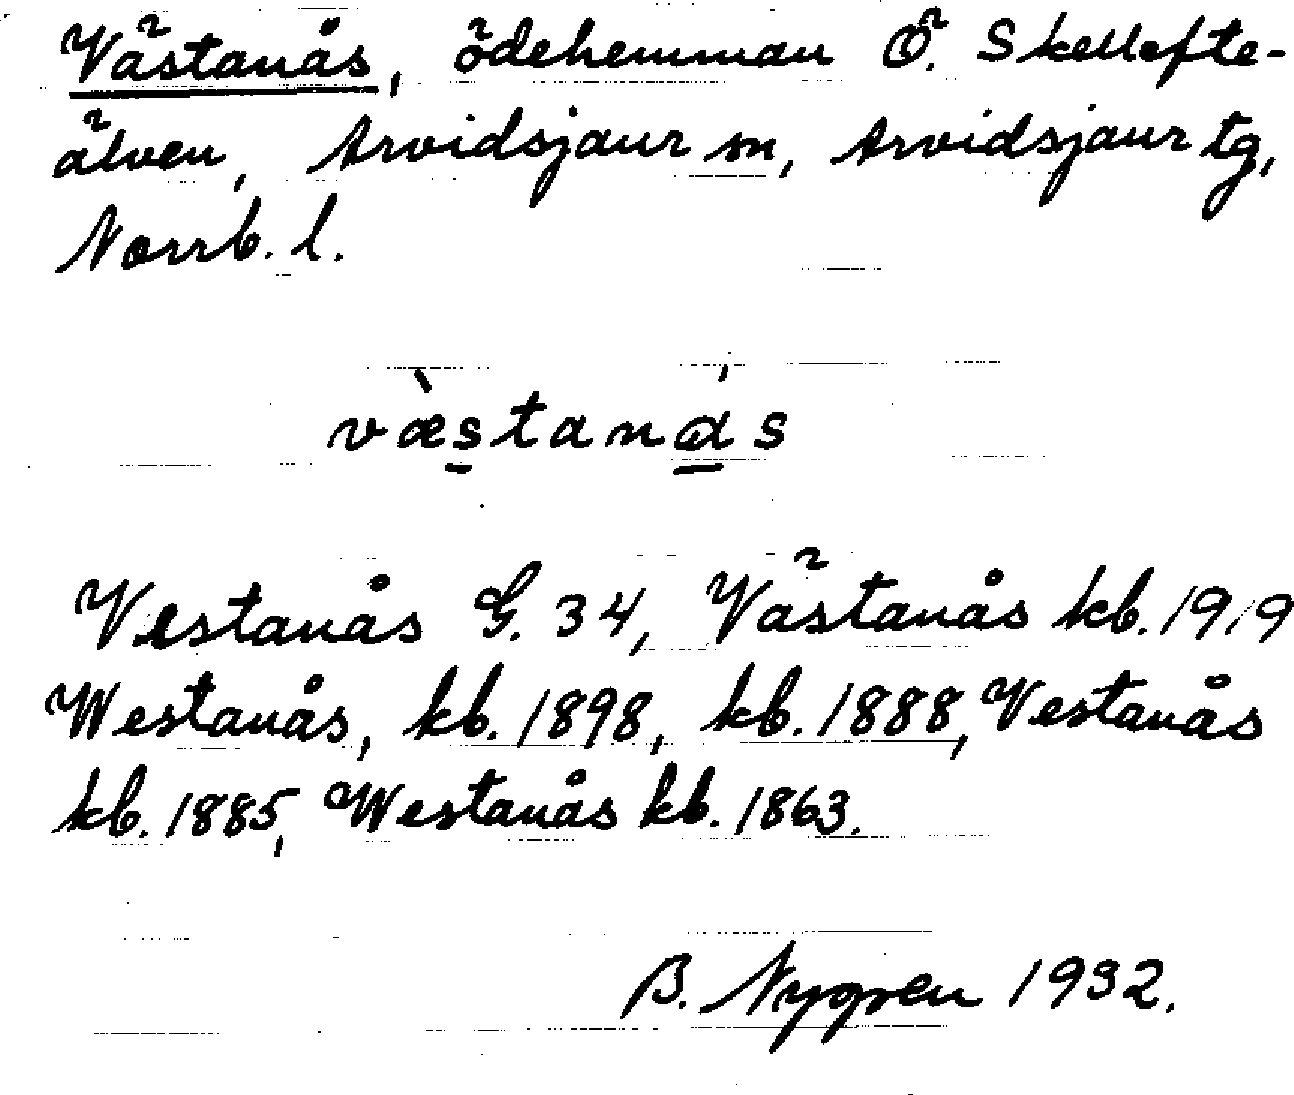 Västanås, ödehemman Ö. Skellefte-
älven, Arvidsjaur sn, Arvidsjaur tg,
Norrb. l.
væ̀stanás
Vestanås G. 34, Västanås kb. 1919
Westanås, kb. 1898, kb. 1888, Vestanås
kb. 1885, Westanås kb. 1863.
B. Nygren 1932.